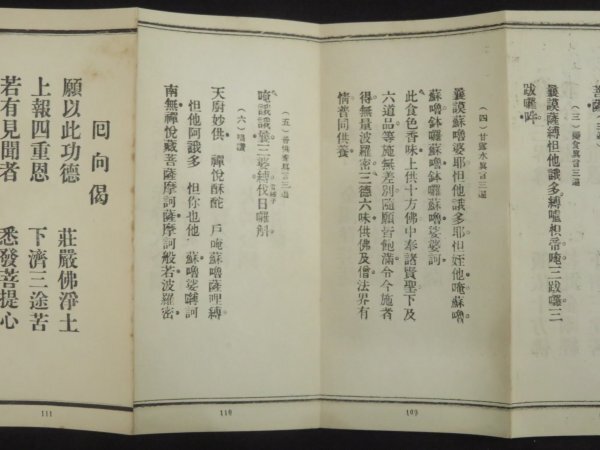 菩薩
(三)變食眞言三遍
曩謨薩縛怛他誐多縛嚧枳帝唵三跋囉三
跋囉吽
(四)甘露水眞言三遍
曩謨蘇嚕婆耶怛他誐多耶怛姪他唵蘇嚕
蘇嚕鉢囉蘇嚕鉢囉蘇嚕娑婆訶
此食色香味上供十方佛中奉諸賢聖下及
六道品等施無差別隨願皆飽滿令今施者
得無量波羅密三德六味供佛及僧法界有
情普同供養
109
(五)普供養眞言三遍
唵誐誐曩三婆縛伐日囉斛
(六)唱讚
天廚妙供 禪悅酥酡 戶唵蘇嚕薩哩縛
怛他阿誐多 怛你也他 蘇嚕娑嚩訶
南無禪悅藏菩薩摩訶薩摩訶般若波羅密
110
回向偈
願以此功德 莊嚴佛淨土
上報四重恩 下濟三途苦
若有見聞者 悉發菩提心
111